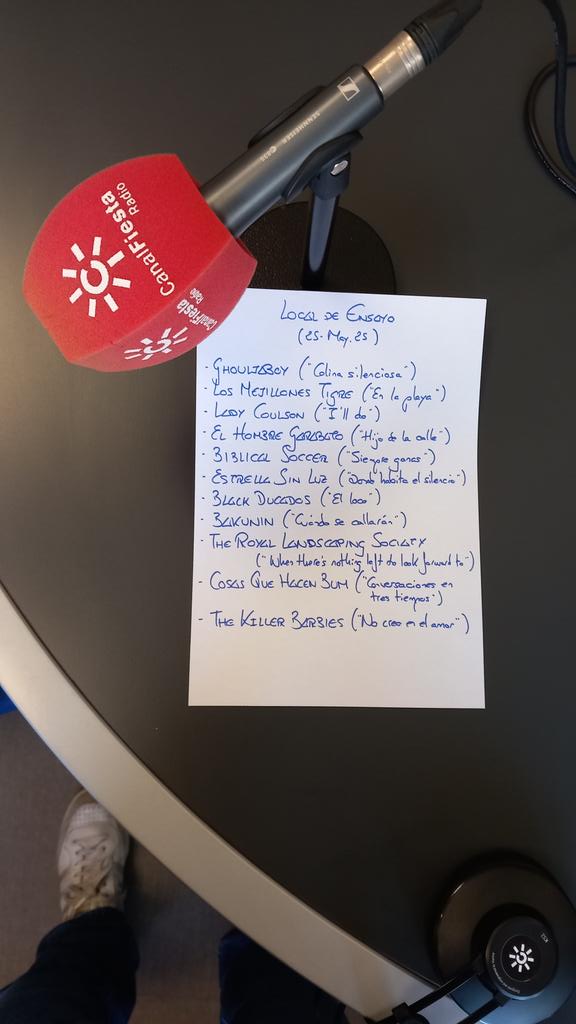 SENNHEISER e835
CanalFiesta
Radio
CanalFiesta
Radio
LOCAL DE ENSAYO
(25. May. 25)
- GHOULJABOY ("Colina silenciosa")
- LOS MEJILLONES TIGRE ("En la playa")
- LADY COULSON ("I'll do")
- EL HOMBRE GARABATO ("Hijo de la calle")
- BIBLICAL SOCCER ("Siempre ganas")
- ESTRELLA SIN LUZ ("Donde habita el silencio")
- BLACK DUCADOS ("El loco")
- BAKUNIN ("Cuándo se callarán")
- THE ROYAL LANDSCAPING SOCIETY
("When there's nothing left to look forward to")
- COSAS QUE HACEN BUM ("Conversaciones en
tres tiempos")
- THE KILLER BARBIES ("No creo en el amor")